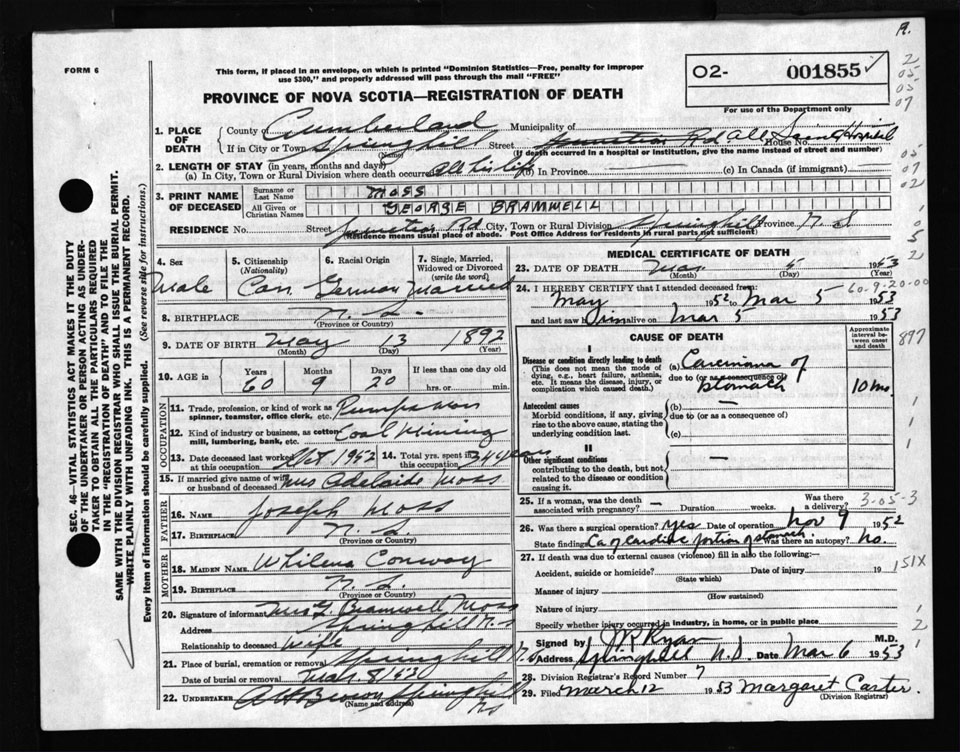 A.
FORM 6
This form, if placed in an envelope, on which is printed "Dominion Statistics—Free, penalty for improper
use $300," and properly addressed will pass through the mail "FREE"
O2- 001855 ✓
For use of the Department only
PROVINCE OF NOVA SCOTIA—REGISTRATION OF DEATH
1. PLACE OF DEATH
County of Cumberland Municipality of
If in City or Town Springhill Street Junction Rd All Saints Hospital House No.
(Name) (If death occurred in a hospital or institution, give the name instead of street and number)
2. LENGTH OF STAY (in years, months and days)
(a) In City, Town or Rural Division where death occurred All his life (b) In Province — (c) In Canada (if immigrant)
3. PRINT NAME OF DECEASED
Surname or Last Name MOSS
All Given or Christian Names GEORGE BRAMWELL
RESIDENCE No. Street Junction Rd City, Town or Rural Division Springhill Province N. S
(Residence means usual place of abode. Post Office Address for residents in rural parts not sufficient)
4. Sex Male
5. Citizenship (Nationality) Can.
6. Racial Origin German
7. Single, Married, Widowed or Divorced (write the word) Married
8. BIRTHPLACE N. S.
(Province or Country)
9. DATE OF BIRTH May 13 1892
(Month) (Day) (Year)
10. AGE in Years Months Days If less than one day old
60 9 20 hrs. or min.
OCCUPATION
11. Trade, profession, or kind of work as spinner, teamster, office clerk, etc. Pumpsman
12. Kind of industry or business, as cotton mill, lumbering, bank, etc. Coal Mining
13. Date deceased last worked at this occupation Oct 1952 14. Total yrs. spent in this occupation 34 years
15. If married give name of wife or husband of deceased Mrs Adelaide Moss
FATHER
16. NAME Joseph Moss
17. BIRTHPLACE N. S.
(Province or Country)
MOTHER
18. MAIDEN NAME Conway
19. BIRTHPLACE N. S.
(Province or Country)
20. Signature of informant Mrs G. Bramwell Moss
Address Springhill N. S
Relationship to deceased Wife
21. Place of burial, cremation or removal Springhill N. S
Date of burial or removal Mar 8/53
22. UNDERTAKER A H Brown Springhill NS
(Name and address)
MEDICAL CERTIFICATE OF DEATH
23. DATE OF DEATH Mar 5 1953
(Month) (Day) (Year)
24. I HEREBY CERTIFY that I attended deceased from: 60-9-20-00
May 1952 to Mar 5 1953
and last saw him alive on Mar 5 1953
CAUSE OF DEATH
Approximate interval between onset and death
I
Disease or condition directly leading to death
(This does not mean the mode of dying, e.g., heart failure, asthenia, etc. It means the disease, injury, or complication which caused death.)
(a) Carcinoma of stomach 10 mos
due to (or as a consequence of)
Antecedent causes
Morbid conditions, if any, giving rise to the above cause, stating the underlying condition last.
(b) —
due to (or as a consequence of)
(c)
II
Other significant conditions
contributing to the death, but not related to the disease or condition causing it.
—
25. If a woman, was the death associated with pregnancy? — Duration weeks. Was there a delivery? 3-05-3
26. Was there a surgical operation? yes Date of operation Nov 7 1952
State findings Ca of cardiac portion of stomach. Was there an autopsy? No.
27. If death was due to external causes (violence) fill in also the following:—
Accident, suicide or homicide? Date of injury 19
(State which)
Manner of injury
(How sustained)
Nature of injury
Specify whether injury occurred in industry, in home, or in public place
Signed by J R Ryan M.D.
Address Springhill N.S. Date Mar 6 1953
28. Division Registrar's Record Number 7
29. Filed March 12 1953 Margaret Carter.
(Division Registrar)
SEC. 46—VITAL STATISTICS ACT MAKES IT THE DUTY
OF THE UNDERTAKER OR PERSON ACTING AS UNDERTAKER TO OBTAIN ALL THE PARTICULARS REQUIRED
IN THE "REGISTRATION OF DEATH" AND TO FILE THE
SAME WITH THE DIVISION REGISTRAR WHO SHALL ISSUE THE BURIAL PERMIT.
WRITE PLAINLY WITH UNFADING INK. THIS IS A PERMANENT RECORD.
Every item of information should be carefully supplied. (See reverse side for instructions.)
2
05
05
07
05
07
02
1
0
5
2
897
1
1
1
151X
1
2
1